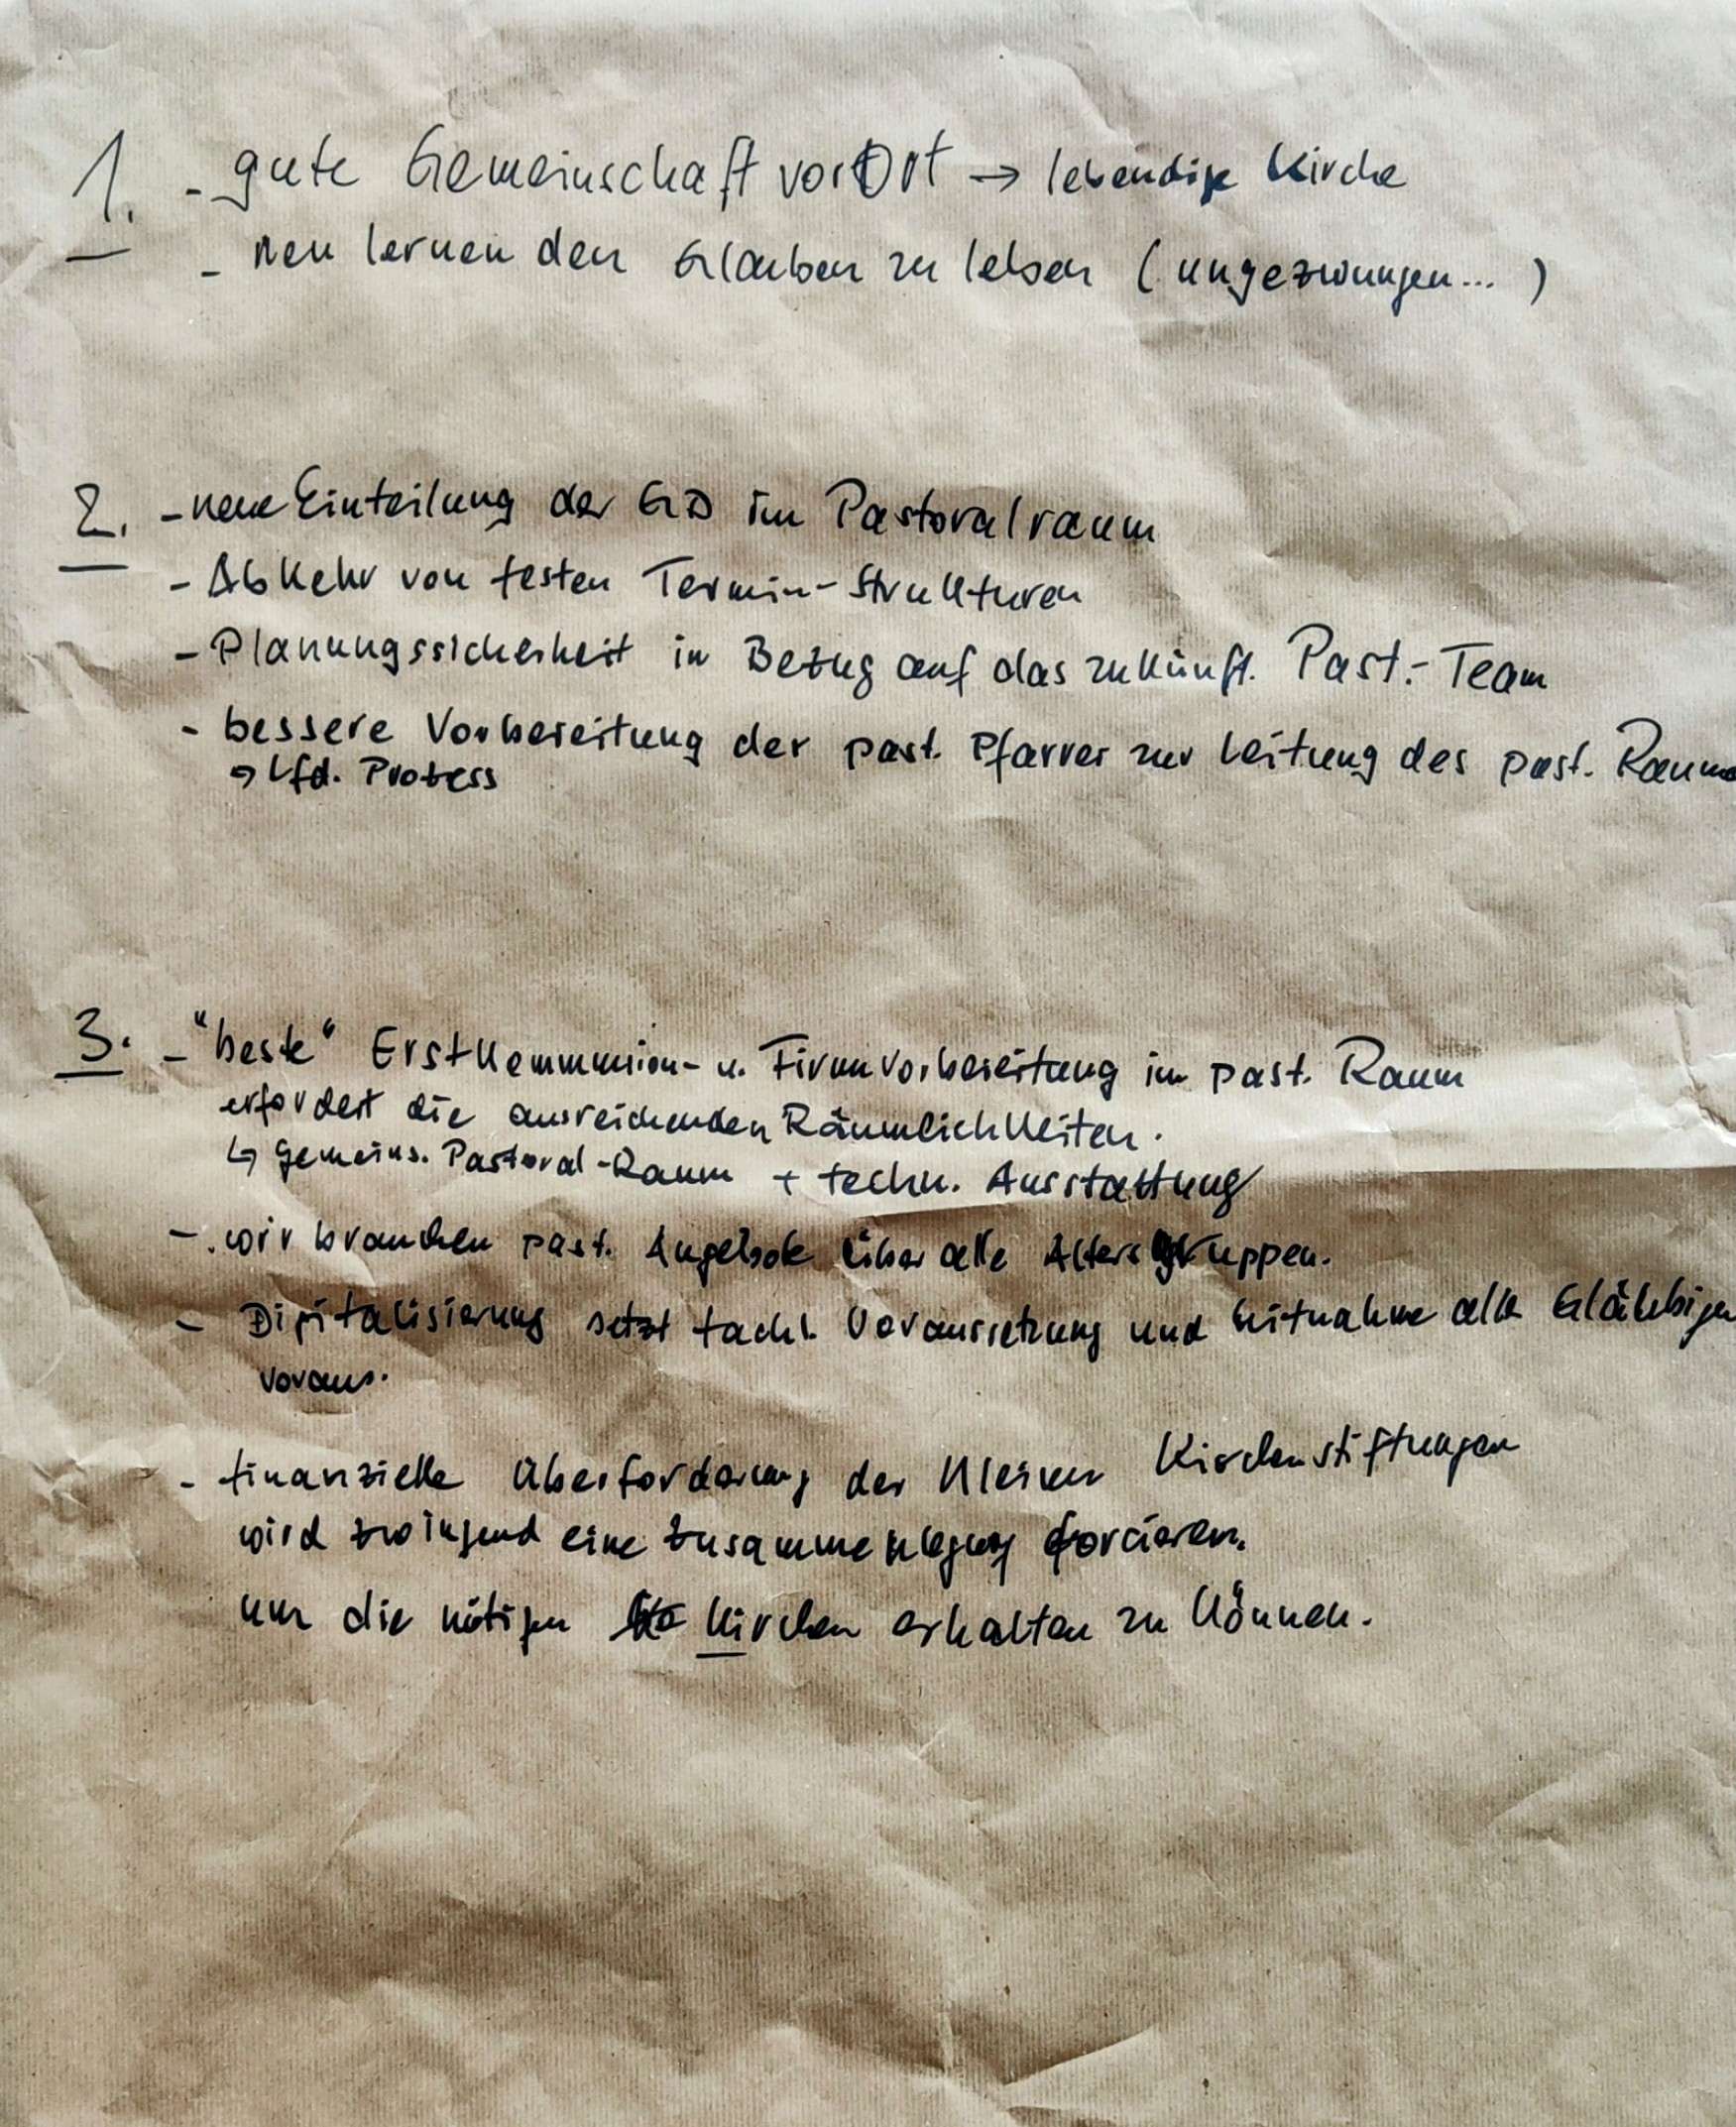 1. - gute Gemeinschaft vor Ort → lebendige Kirche
- neu lernen den Glauben zu leben (ungezwungen... )
2. - neue Einteilung der GD im Pastoralraum
- Abkehr von festen Termin-Strukturen
- Planungssicherheit in Bezug auf das zukünft. Past.-Team
- bessere Vorbereitung der past. Pfarrer zur Leitung des past. Raums
↳ lfd. Prozess
3. - "beste" Erstkommunion- u. Firmvorbereitung im past. Raum
erfordert die ausreichenden Räumlichkeiten.
↳ gemeins. Pastoral-Raum + techn. Ausstattung
- wir brauchen past. Angebote über alle Altersgruppen.
- Digitalisierung setzt fachl. Voraussetzung und Mitnahme alle Gläubigen
voraus.
- finanzielle Überforderung der kleinen Kirchenstiftungen
wird zwingend eine Zusammenlegung forcieren.
um die nötigen Kirchen erhalten zu können.